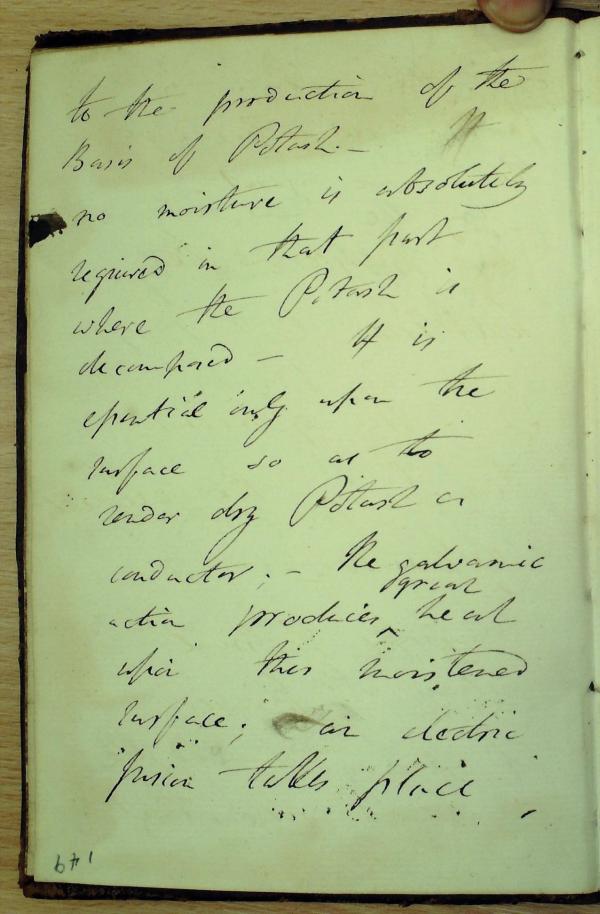 to the production of the
Basis of Potash. —
no moisture is absolutely
required in that part
where the Potash is
decomposed — It is
essential only upon the
surface so as to
render dry Potash a
conductor; — the galvanic
great
action produces ^ heat
upon this moistened
surface; an electric
fusion takes place
149